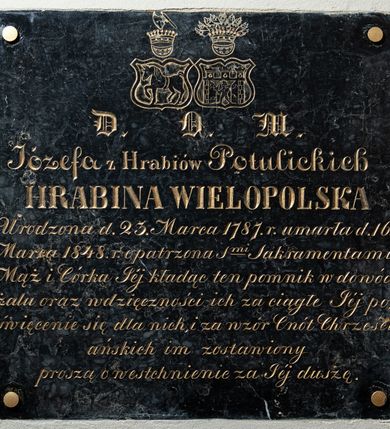 D. O. M.
Józefa z Hrabiów Potulickich
HRABINA WIELOPOLSKA
Urodzona d. 23. Marca 1787. r. umarła d. 10
Marca 1848. r. opatrzona S.mi Sakramentami
Mąż i Córka Jéj kładąc ten pomnik w dowód
żalu oraz wdzięczności ich za ciągłe Jéj po
święcenie się dla nich, i za wzór Cnót Chrześci
ańskich im zostawiony
proszą o westchnienie za Jéj duszę.